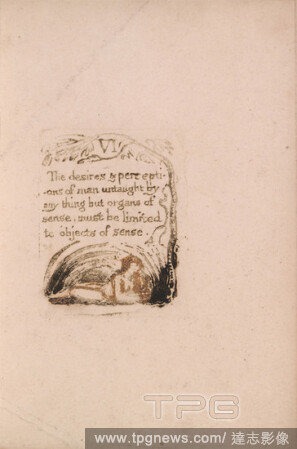 VI
The desires & percepti-
-ons of man untaught by
any thing but organs of
sense, must be limited
to objects of sense.
TPG
www.tpgnews.com/達志影像